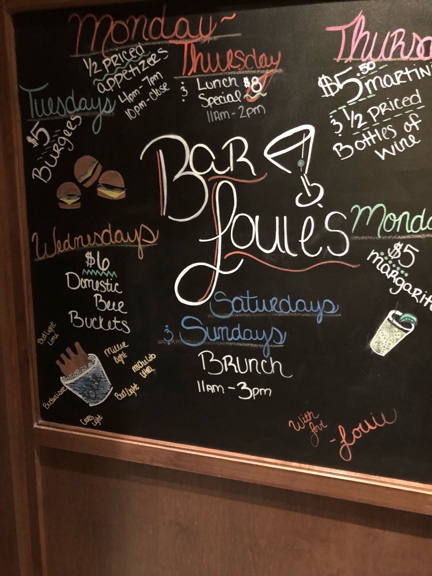 Monday~
Thursday
1/2 priced
appetizers
4pm-7pm
10pm-close
& Lunch $8
Special
11am-2pm
Thursd
$5.50
martin
& 1/2 priced
Bottles of
wine
Tuesdays
$5
Burgers
BAR
Louie's
Wednesdays
$16
Domestic
Beer
Buckets
Miller
light
michelob
ultra
Bud light
Coors
light
Budweiser
Monda
$5
margarit
Saturdays
& Sundays
BRUNCH
11am-3pm
With
love
-Louie